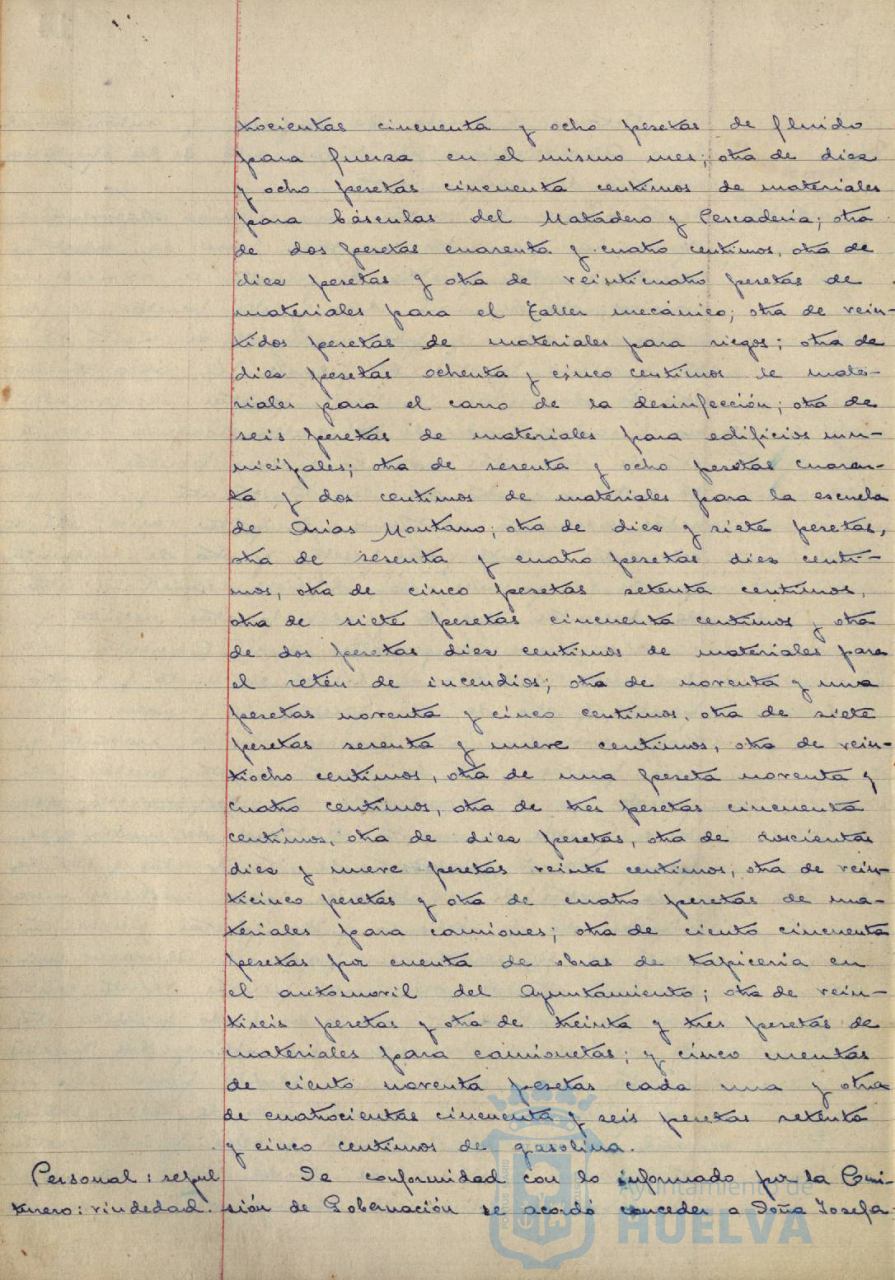 trocientas cincuenta y ocho pesetas de fluido
para fuerza en el mismo mes; otra de diez
y ocho pesetas cincuenta centimos de materiales
para básculas del Matadero y Pescaderia; otra
de dos pesetas cuarenta y cuatro centimos, otra de
diez pesetas y otra de veinticuatro pesetas de
materiales para el taller mecánico; otra de vein-
tidos pesetas de materiales para riegos; otra de
diez pesetas ochenta y cinco centimos de mate-
riales para el carro de la desinfección; otra de
seis pesetas de materiales para edificios mu-
nicipales; otra de sesenta y ocho pesetas cuaren-
ta y dos centimos de materiales para la escuela
de Arias Montano; otra de diez y siete pesetas,
otra de sesenta y cuatro pesetas diez centi-
mos, otra de cinco pesetas setenta centimos,
otra de siete pesetas cincuenta centimos y otra
de dos pesetas diez centimos de materiales para
el retén de incendios; otra de noventa y una
pesetas noventa y cinco centimos, otra de siete
pesetas sesenta y nueve centimos, otra de vein-
tiocho centimos, otra de una peseta noventa y
cuatro centimos, otra de tres pesetas cincuenta
centimos, otra de diez pesetas, otra de doscientas
diez y nueve pesetas veinte centimos, otra de vein-
ticinco pesetas y otra de cuatro pesetas de ma-
teriales para camiones; otra de ciento cincuenta
pesetas por cuenta de obras de tapiceria en
el automovil del Ayuntamiento; otra de vein-
tiseis pesetas y otra de treinta y tres pesetas de
materiales para camionetas; y cinco cuentas
de ciento noventa pesetas cada una y otra
de cuatrocientas cincuenta y seis pesetas setenta
y cinco centimos de gasolina.
Personal: sepul
turero: viudedad.
De conformidad con lo informado por la Comi-
sión de Gobernación se acordó conceder a Doña Josefa
Ayuntamiento de
HUELVA